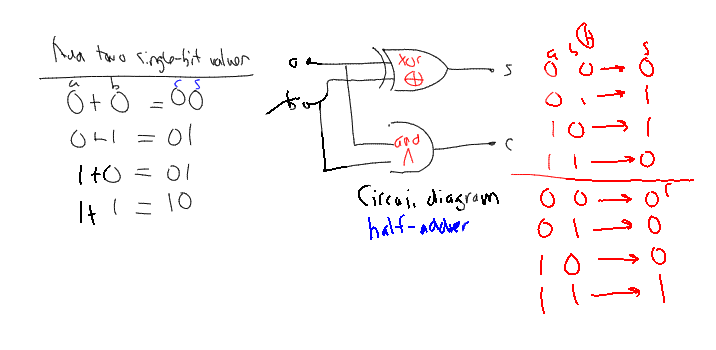 Add two single-bit values
a b c s
0 + 0 = 00
0 + 1 = 01
1 + 0 = 01
1 + 1 = 10
a
b
xor
⊕
s
and
∧
c
Circui. diagram
half-adder
a b ⊕ s
0 0 → 0
0 1 → 1
1 0 → 1
1 1 → 0
0 0 → 0 c
0 1 → 0
1 0 → 0
1 1 → 1